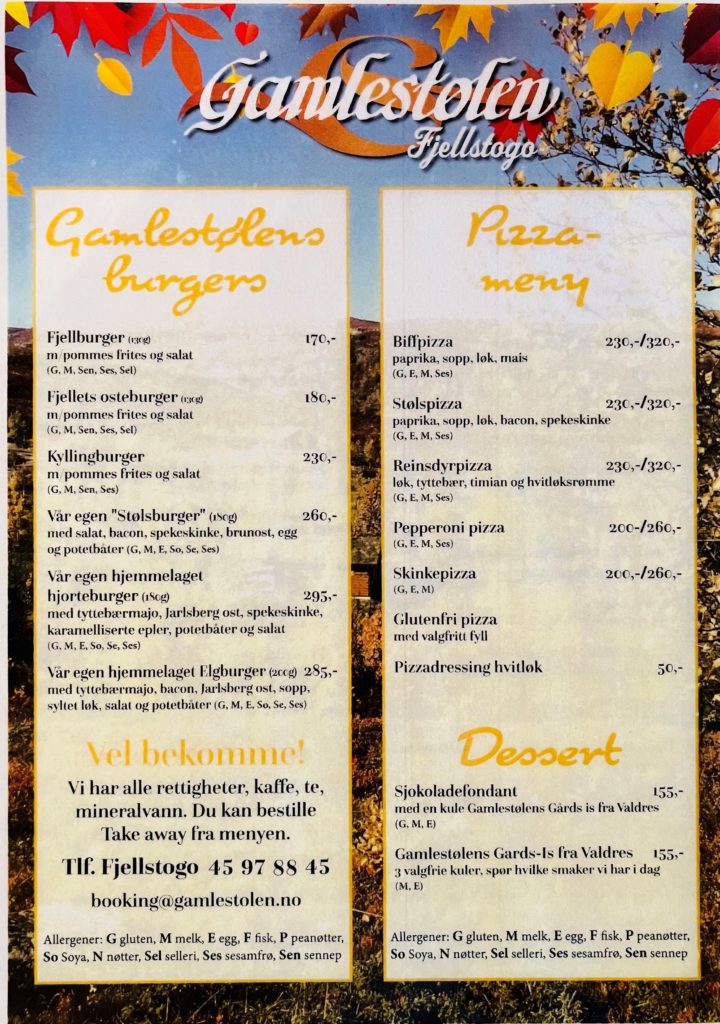 Gamlestølen
Fjellstogo
Gamlestølens
burgers
Fjellburger (130g) 170,-
m/pommes frites og salat
(G, M, Sen, Ses, Sel)
Fjellets osteburger (130g) 180,-
m/pommes frites og salat
(G, M, Sen, Ses, Sel)
Kyllingburger 230,-
m/pommes frites og salat
(G, M, Sen, Ses)
Vår egen "Stølsburger" (180g) 260,-
med salat, bacon, spekeskinke, brunost, egg
og potetbåter (G, M, E, So, Se, Ses)
Vår egen hjemmelaget
hjorteburger (180g) 295,-
med tyttebærmajo, Jarlsberg ost, spekeskinke,
karamelliserte epler, potetbåter og salat
(G, M, E, So, Se, Ses)
Vår egen hjemmelaget Elgburger (200g) 285,-
med tyttebærmajo, bacon, Jarlsberg ost, sopp,
syltet løk, salat og potetbåter (G, M, E, So, Se, Ses)
Vel bekomme!
Vi har alle rettigheter, kaffe, te,
mineralvann. Du kan bestille
Take away fra menyen.
Tlf. Fjellstogo 45 97 88 45
booking@gamlestolen.no
Allergener: G gluten, M melk, E egg, F fisk, P peanøtter,
So Soya, N nøtter, Sel selleri, Ses sesamfrø, Sen sennep
Pizza-
meny
Biffpizza 230,-/320,-
paprika, sopp, løk, mais
(G, E, M, Ses)
Stølspizza 230,-/320,-
paprika, sopp, løk, bacon, spekeskinke
(G, E, M, Ses)
Reinsdyrpizza 230,-/320,-
løk, tyttebær, timian og hvitløksrømme
(G, E, M, Ses)
Pepperoni pizza 200-/260,-
(G, E, M, Ses)
Skinkepizza 200,-/260,-
(G, E, M)
Glutenfri pizza
med valgfritt fyll
Pizzadressing hvitløk 50,-
Dessert
Sjokoladefondant 155,-
med en kule Gamlestølens Gårds is fra Valdres
(G, M, E)
Gamlestølens Gards-Is fra Valdres 155,-
3 valgfrie kuler, spør hvilke smaker vi har i dag
(M, E)
Allergener: G gluten, M melk, E egg, F fisk, P peanøtter,
So Soya, N nøtter, Sel selleri, Ses sesamfrø, Sen sennep